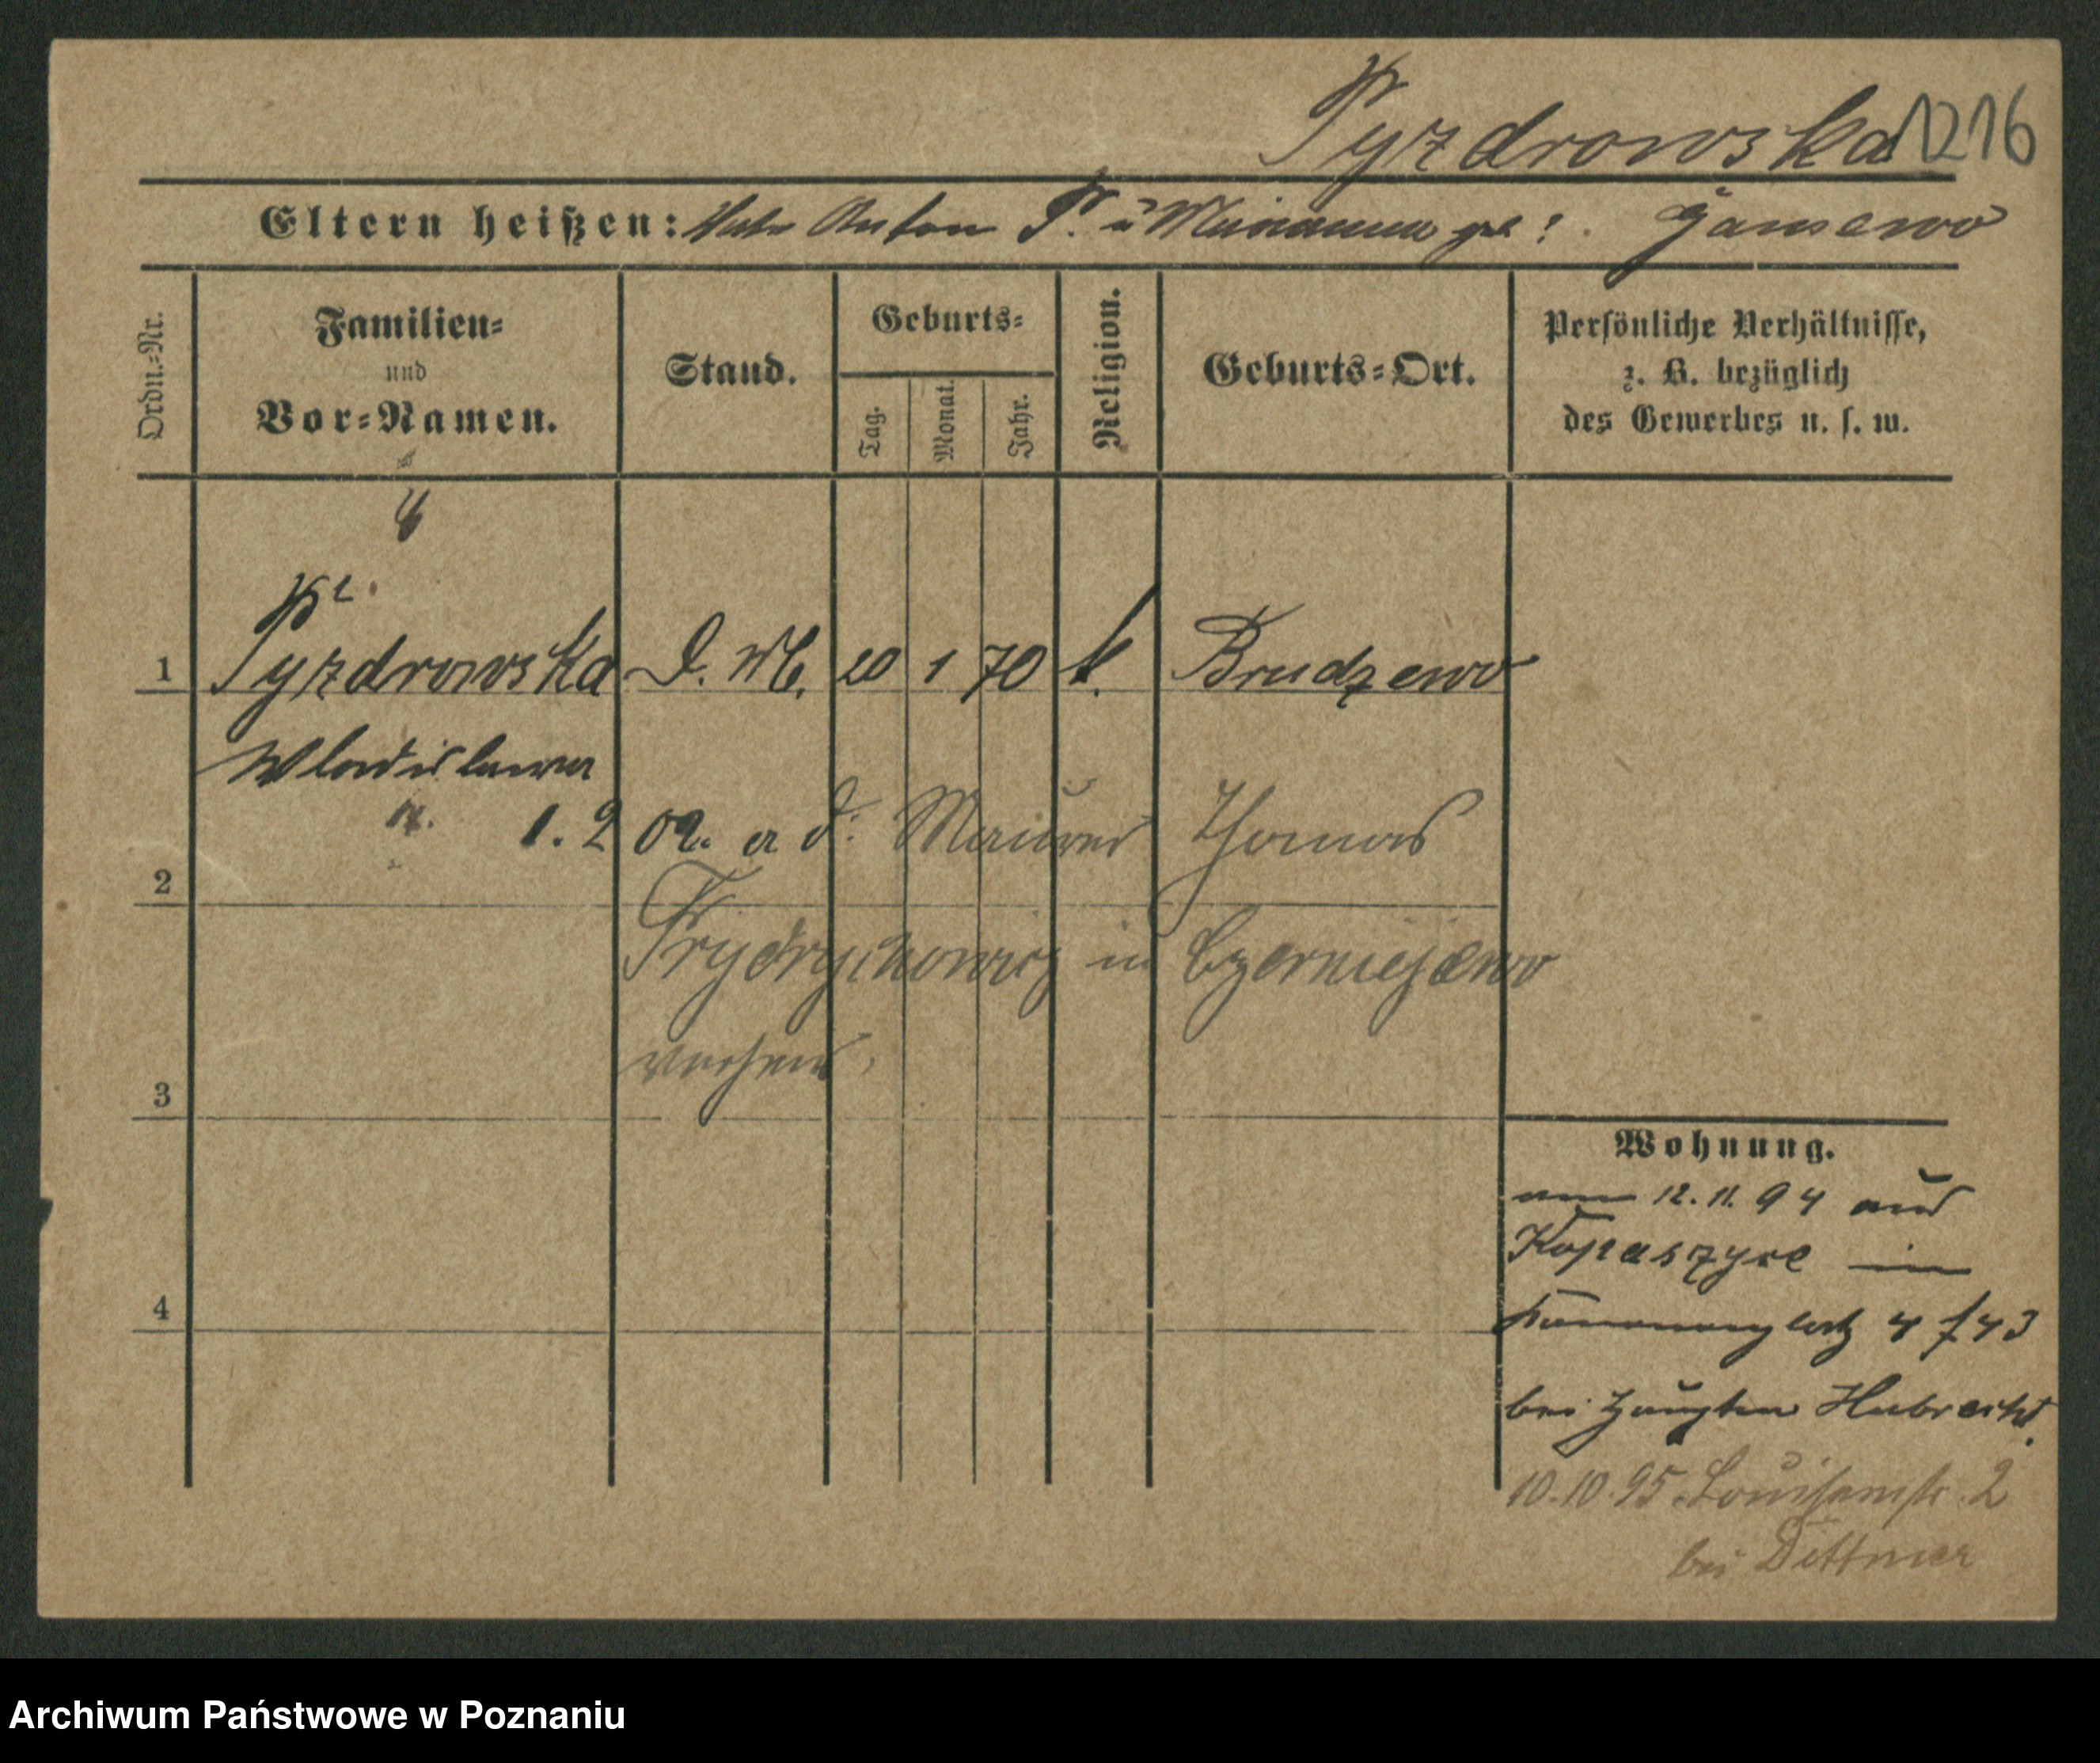 Pyzdrowska 1216
Eltern heißen: Anton P. u Marianna geb ? . Gansewo
Ordn.=Nr.
Familien=
und
Vor=Namen.
Stand.
Geburts=
Tag.
Monat.
Jahr.
Religion.
Geburts=Ort.
Persönliche Verhältnisse,
z. B. bezüglich
des Gewerbes u. s. w.
1 Pyzdrowska D. M. 20 1 70 k. Brudzewo
Wladislawa
1. 2 02. a d. Maurer Thomas
2
Frydrychowicz in Czerniejewo
verh
3
Wohnung.
am 12. 11. 94 aus
Kopaszyce in
4
4 f 43
bei Hauptm Hubrecht.
10. 10. 95. Louisenstr. 2
bei Dittmer
Archiwum Państwowe w Poznaniu